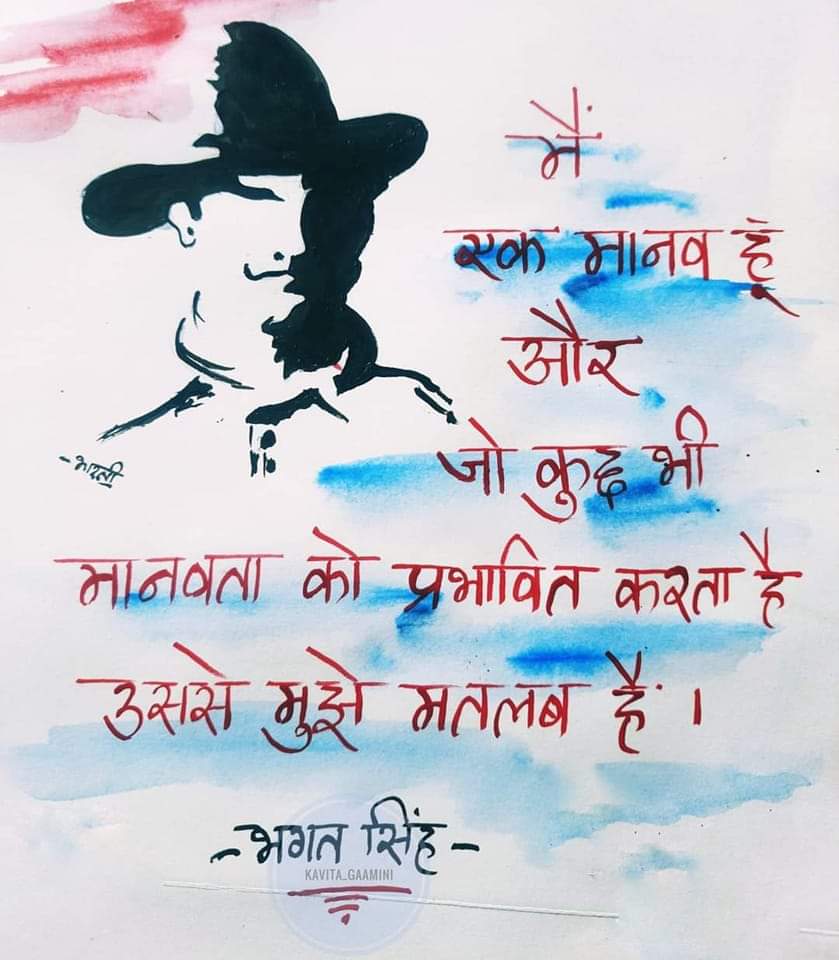 मैं
एक मानव हूं
और
जो कुछ भी
- भारती
मानवता को प्रभावित करता है
उससे मुझे मतलब हैं ।
- भगत सिंह -
KAVITA_GAAMINI